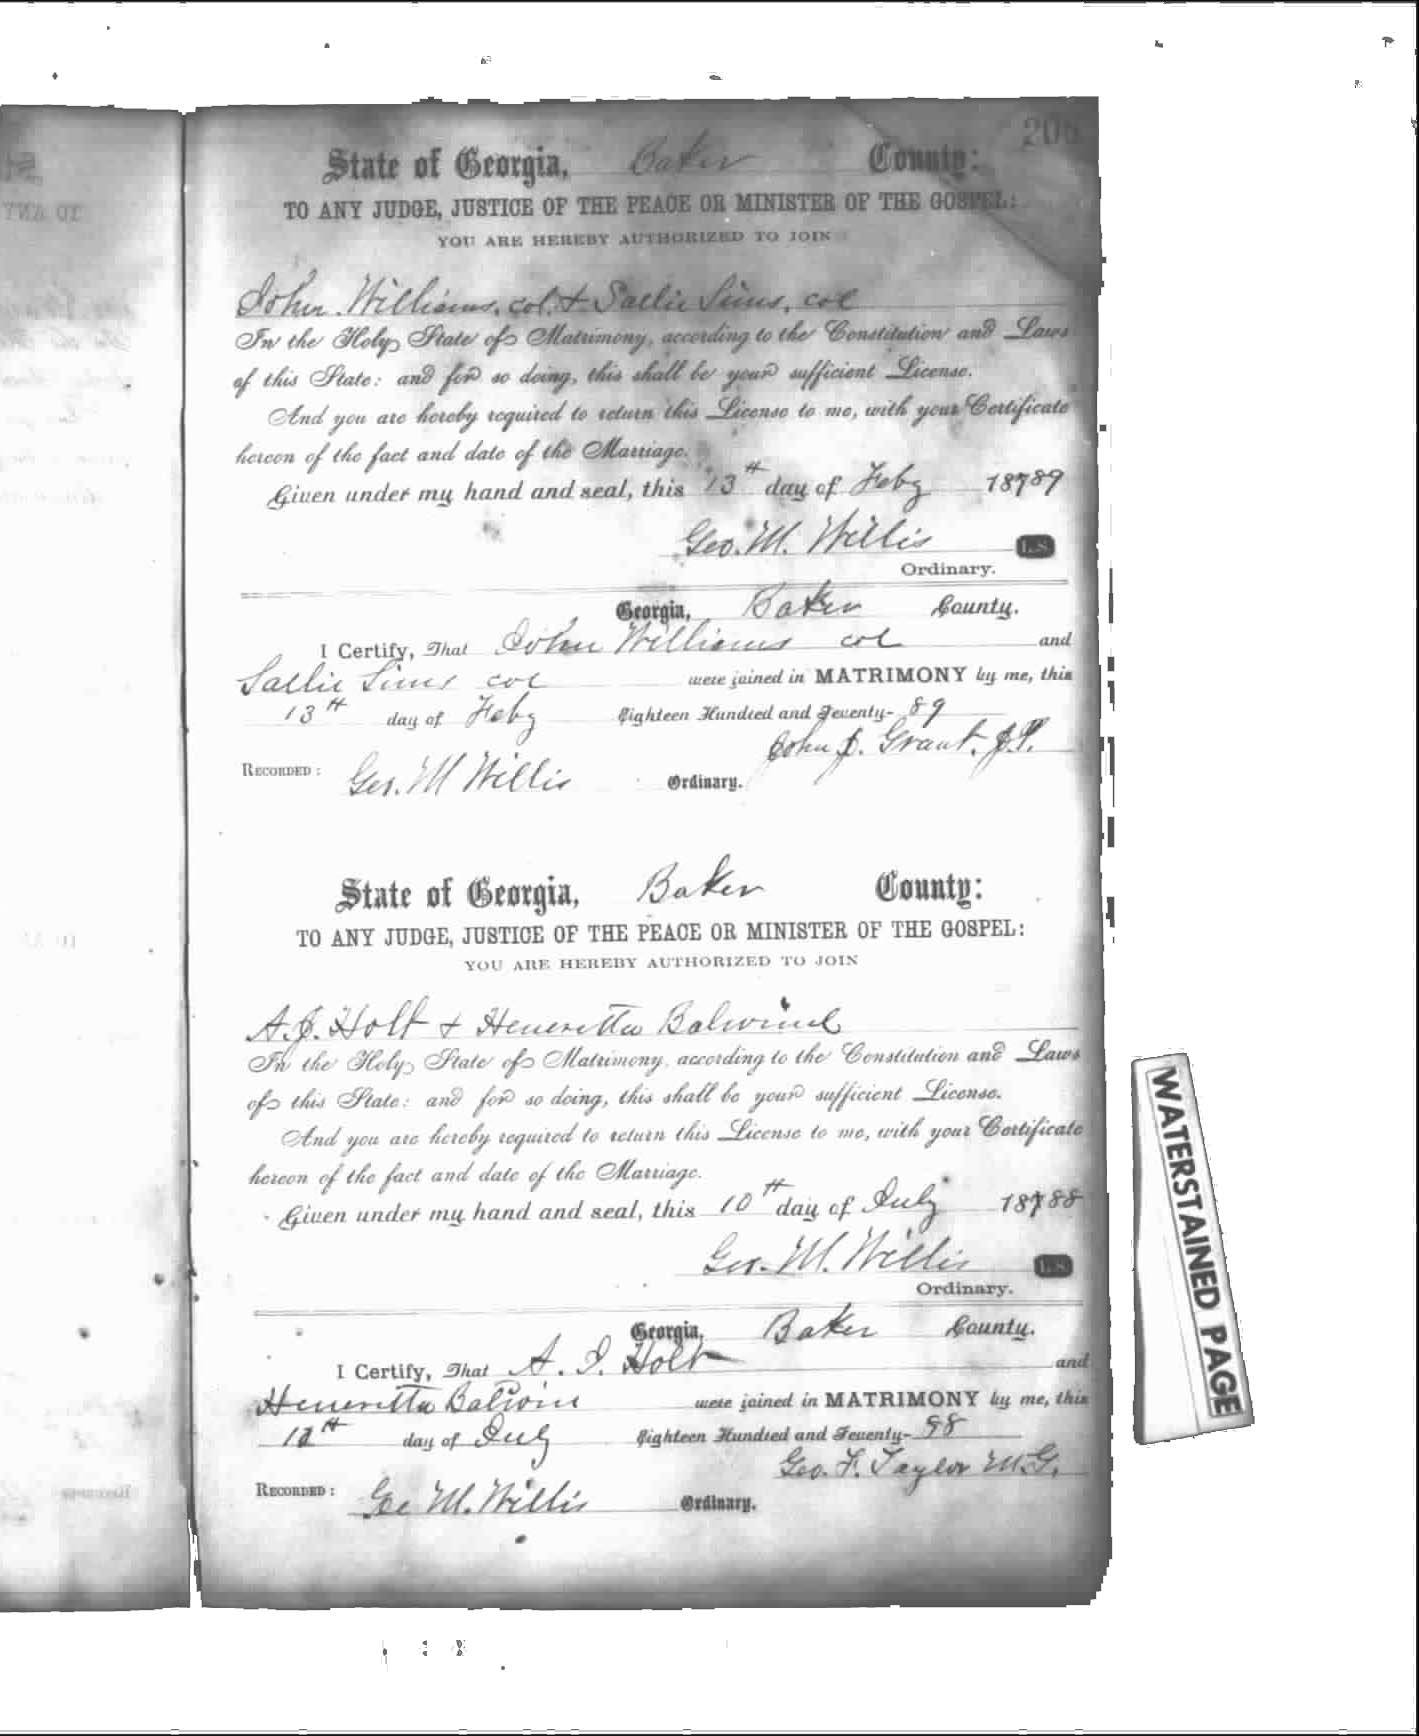 State of Georgia, Baker County:
TO ANY JUDGE, JUSTICE OF THE PEACE OR MINISTER OF THE GOSPEL:
YOU ARE HEREBY AUTHORIZED TO JOIN
John Williams, col, & Sallie Sims, col
In the Holy State of Matrimony, according to the Constitution and Laws
of this State: and for so doing, this shall be your sufficient License.
And you are hereby required to return this License to me, with your Certificate
hereon of the fact and date of the Marriage.
Given under my hand and seal, this 13th day of Feby 18789
Geo. M. Willis L.S.
Ordinary.
Georgia, Baker County.
I Certify, That John Williams col and
Sallie Sims col were joined in MATRIMONY by me, this
13th day of Feby Eighteen Hundred and Seventy- 89
John J. Grant. J.P.
RECORDED: Geo. M Willis Ordinary.
State of Georgia, Baker County:
TO ANY JUDGE, JUSTICE OF THE PEACE OR MINISTER OF THE GOSPEL:
YOU ARE HEREBY AUTHORIZED TO JOIN
A. J. Holt & Heneretta
In the Holy State of Matrimony, according to the Constitution and Laws
of this State: and for so doing, this shall be your sufficient License.
And you are hereby required to return this License to me, with your Certificate
hereon of the fact and date of the Marriage.
Given under my hand and seal, this 10th day of July 18788
Geo. M. Willis L.S.
Ordinary.
Georgia, Baker County.
I Certify, That A. J. Holt and
Heneretta were joined in MATRIMONY by me, this
12th day of July Eighteen Hundred and Seventy- 88
Geo. F. Taylor M.G.
RECORDED: Geo M. Willis Ordinary.
WATERSTAINED PAGE